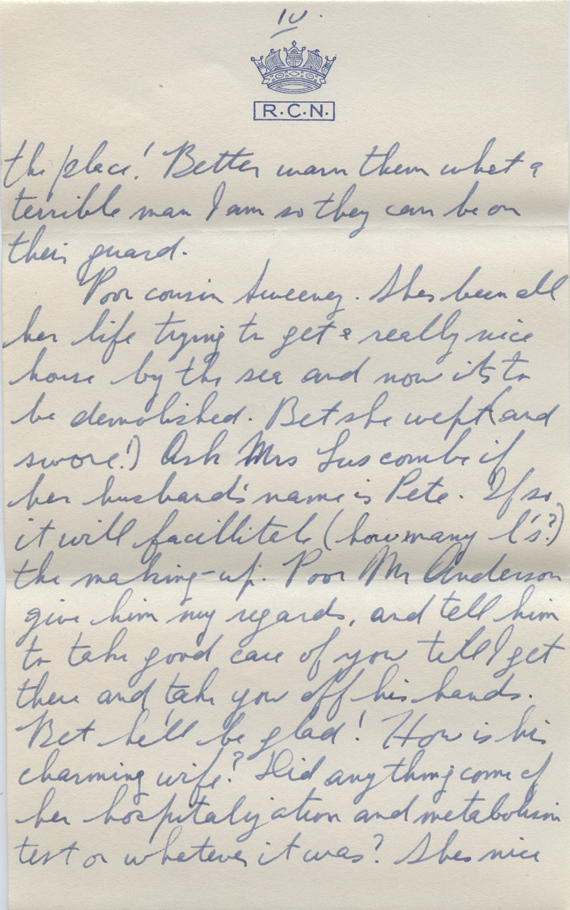 IV.
R.C.N.
the place! Better warn them what a
terrible man I am so they can be on
their guard.
Poor cousin Sweeney. Shes been all
her life trying to get a really nice
house by the sea and now its to
be demolished. Bet she wept (and
swore!) Ask Mrs Luscombe if
her husband's name is Pete. If so,
it will facillitate (how many l's?)
the making-up. Poor Mr Anderson
give him my regards, and tell him
to take good care of you till I get
there and take you off his hands.
Bet he'll be glad! How is his
charming wife? Did anything come of
her hospitalization and metabolism
test or whatever it was? Shes nice